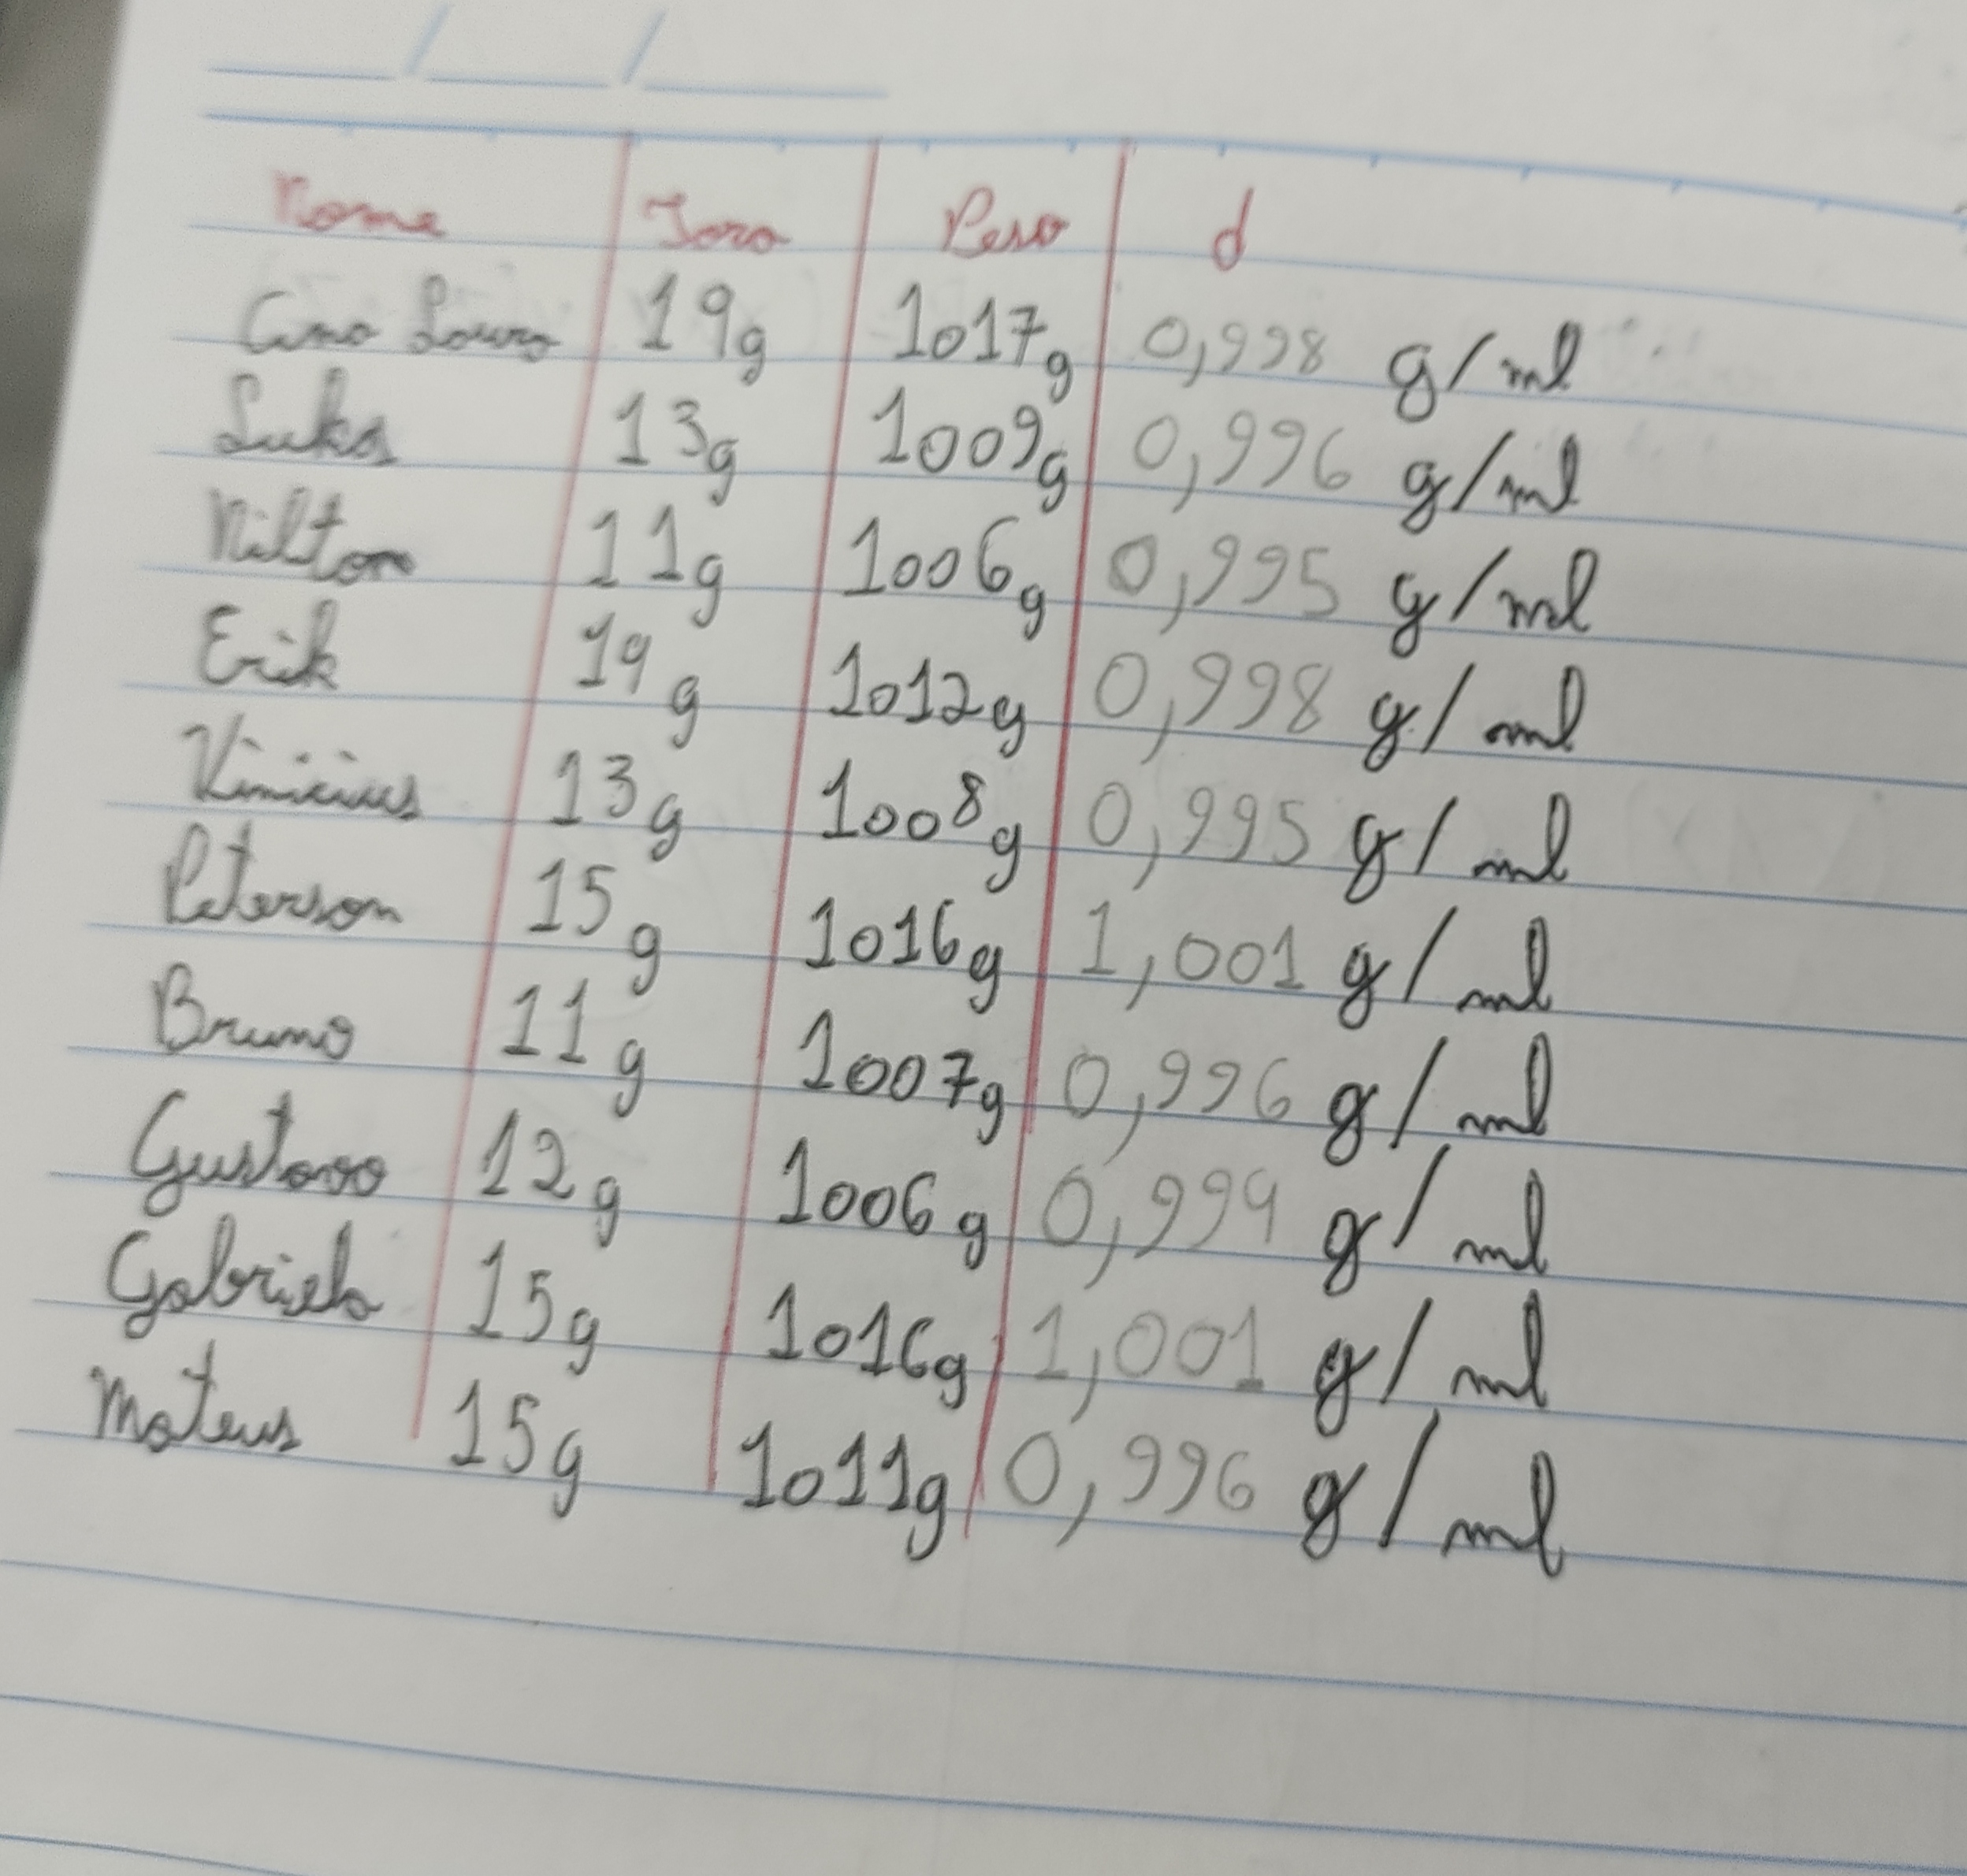 Nome Tara Peso d
Ana Laura 19g 1017g 0,998 g/ml
Lukas 13g 1009g 0,996 g/ml
Nilton 11g 1006g 0,995 g/ml
Erik 14g 1012g 0,998 g/ml
Vinicius 13g 1008g 0,995 g/ml
Peterson 15g 1016g 1,001 g/ml
Bruno 11g 1007g 0,996 g/ml
Gustavo 12g 1006g 0,994 g/ml
Gabriela 15g 1016g 1,001 g/ml
Mateus 15g 1011g 0,996 g/ml